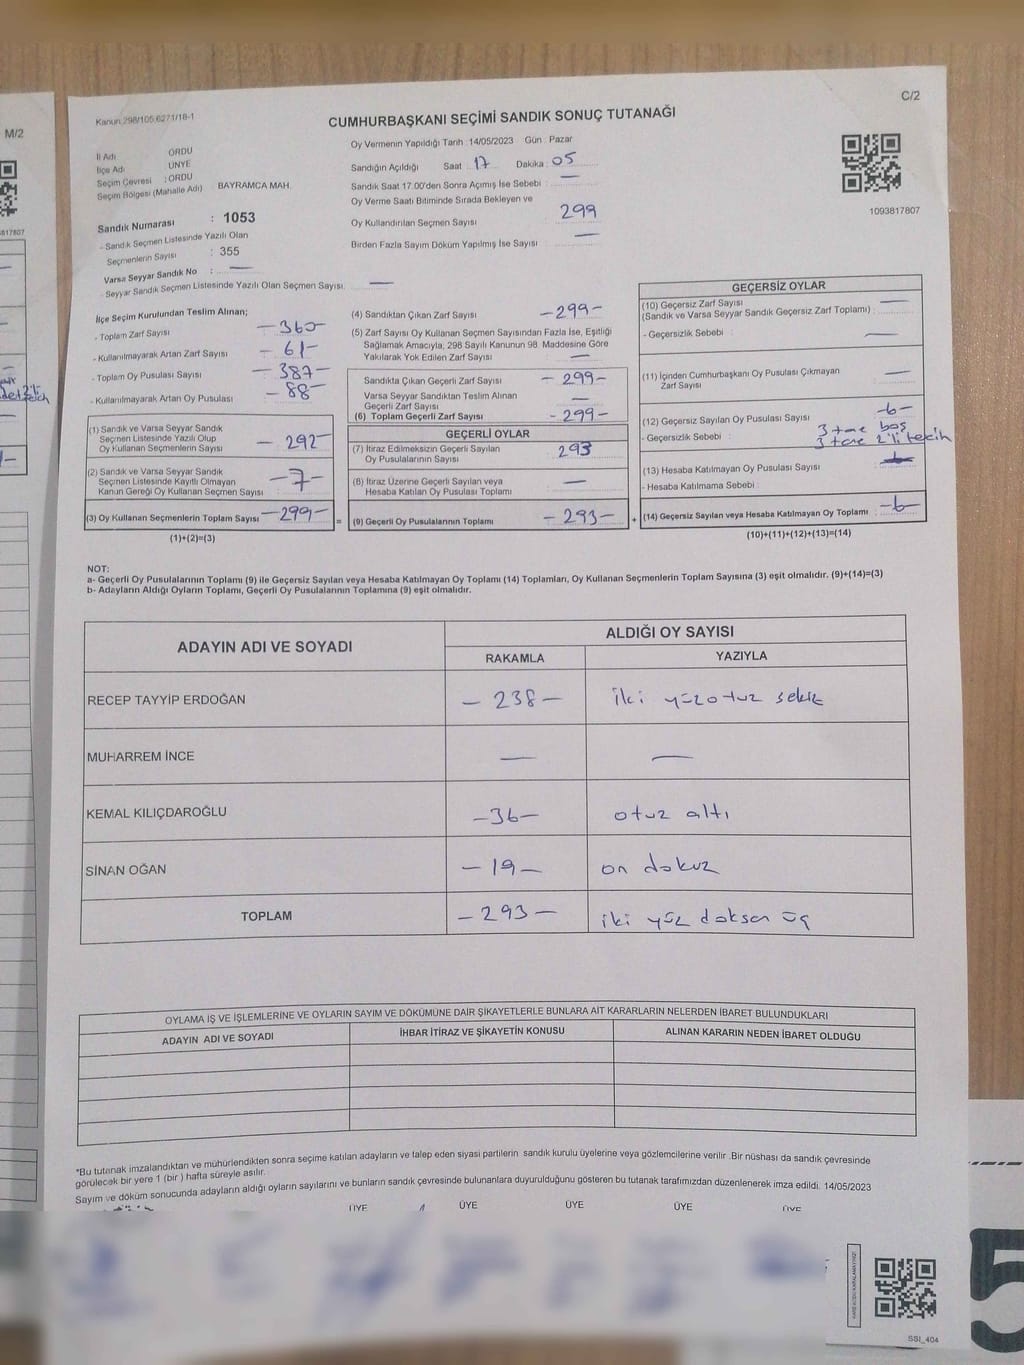 C/2
M/2
Kanun 298/105,6271/18-1
CUMHURBAŞKANI SEÇİMİ SANDIK SONUÇ TUTANAĞI
İl Adı ORDU
İlçe Adı ÜNYE
Seçim Çevresi : ORDU
Seçim Bölgesi (Mahalle Adı) : BAYRAMCA MAH.
Sandık Numarası : 1053
- Sandık Seçmen Listesinde Yazılı Olan
Seçmenlerin Sayısı : 355
Varsa Seyyar Sandık No : —
- Seyyar Sandık Seçmen Listesinde Yazılı Olan Seçmen Sayısı: —
Oy Vermenin Yapıldığı Tarih :14/05/2023 Gün : Pazar
Sandığın Açıldığı Saat : 17 Dakika : 05
Sandık Saat 17.00'den Sonra Açımış İse Sebebi : —
Oy Verme Saati Bitiminde Sırada Bekleyen ve
Oy Kullandırılan Seçmen Sayısı 299
Birden Fazla Sayım Döküm Yapılmış İse Sayısı : —
1093817807
İlçe Seçim Kurulundan Teslim Alınan;
- Toplam Zarf Sayısı — 360 —
- Kullanılmayarak Artan Zarf Sayısı — 61 —
- Toplam Oy Pusulası Sayısı — 387 —
- Kullanılmayarak Artan Oy Pusulası — 88 —
(1) Sandık ve Varsa Seyyar Sandık
Seçmen Listesinde Yazılı Olup
Oy Kullanan Seçmenlerin Sayısı — 292 —
(2) Sandık ve Varsa Seyyar Sandık
Seçmen Listesinde Kayıtlı Olmayan
Kanun Gereği Oy Kullanan Seçmen Sayısı — 7 —
(3) Oy Kullanan Seçmenlerin Toplam Sayısı — 299 —
(1)+(2)=(3)
(4) Sandıktan Çıkan Zarf Sayısı — 299 —
(5) Zarf Sayısı Oy Kullanan Seçmen Sayısından Fazla İse, Eşitliği
Sağlamak Amacıyla, 298 Sayılı Kanunun 98. Maddesine Göre
Yakılarak Yok Edilen Zarf Sayısı —
Sandıkta Çıkan Geçerli Zarf Sayısı — 299 —
Varsa Seyyar Sandıktan Teslim Alınan
Geçerli Zarf Sayısı —
(6) Toplam Geçerli Zarf Sayısı - 299 -
GEÇERLİ OYLAR
(7) İtiraz Edilmeksizin Geçerli Sayılan
Oy Pusulalarının Sayısı 293
(8) İtiraz Üzerine Geçerli Sayılan veya
Hesaba Katılan Oy Pusulası Toplamı —
= (9) Geçerli Oy Pusulalarının Toplamı — 293 — +
GEÇERSİZ OYLAR
(10) Geçersiz Zarf Sayısı —
(Sandık ve Varsa Seyyar Sandık Geçersiz Zarf Toplamı) :
- Geçersizlik Sebebi : —
(11) İçinden Cumhurbaşkanı Oy Pusulası Çıkmayan
Zarf Sayısı —
(12) Geçersiz Sayılan Oy Pusulası Sayısı -6-
3 tane boş
- Geçersizlik Sebebi : 3 tane 2'li tercih
(13) Hesaba Katılmayan Oy Pusulası Sayısı
- Hesaba Katılmama Sebebi :
(14) Geçersiz Sayılan veya Hesaba Katılmayan Oy Toplamı : -6-
(10)+(11)+(12)+(13)=(14)
NOT:
a- Geçerli Oy Pusulalarının Toplamı (9) ile Geçersiz Sayılan veya Hesaba Katılmayan Oy Toplamı (14) Toplamları, Oy Kullanan Seçmenlerin Toplam Sayısına (3) eşit olmalıdır. (9)+(14)=(3)
b- Adayların Aldığı Oyların Toplamı, Geçerli Oy Pusulalarının Toplamına (9) eşit olmalıdır.
ADAYIN ADI VE SOYADI ALDIĞI OY SAYISI
RAKAMLA YAZIYLA
RECEP TAYYİP ERDOĞAN — 238 — iki yüzotuz sekiz
MUHARREM İNCE — —
KEMAL KILIÇDAROĞLU -36- otuz altı
SİNAN OĞAN -19- on dokuz
TOPLAM -293- iki yüz doksan üç
OYLAMA İŞ VE İŞLEMLERİNE VE OYLARIN SAYIM VE DÖKÜMÜNE DAİR ŞİKAYETLERLE BUNLARA AİT KARARLARIN NELERDEN İBARET BULUNDUKLARI
ADAYIN ADI VE SOYADI İHBAR İTİRAZ VE ŞİKAYETİN KONUSU ALINAN KARARIN NEDEN İBARET OLDUĞU
*Bu tutanak imzalandıktan ve mühürlendikten sonra seçime katılan adayların ve talep eden siyasi partilerin sandık kurulu üyelerine veya gözlemcilerine verilir .Bir nüshası da sandık çevresinde
görülecek bir yere 1 (bir ) hafta süreyle asılır.
Sayım ve döküm sonucunda adayların aldığı oyların sayılarını ve bunların sandık çevresinde bulunanlara duyurulduğunu gösteren bu tutanak tarafımızdan düzenlenerek imza edildi. 14/05/2023
ÜYE ÜYE ÜYE ÜYE ÜYE
SSİ_404
5